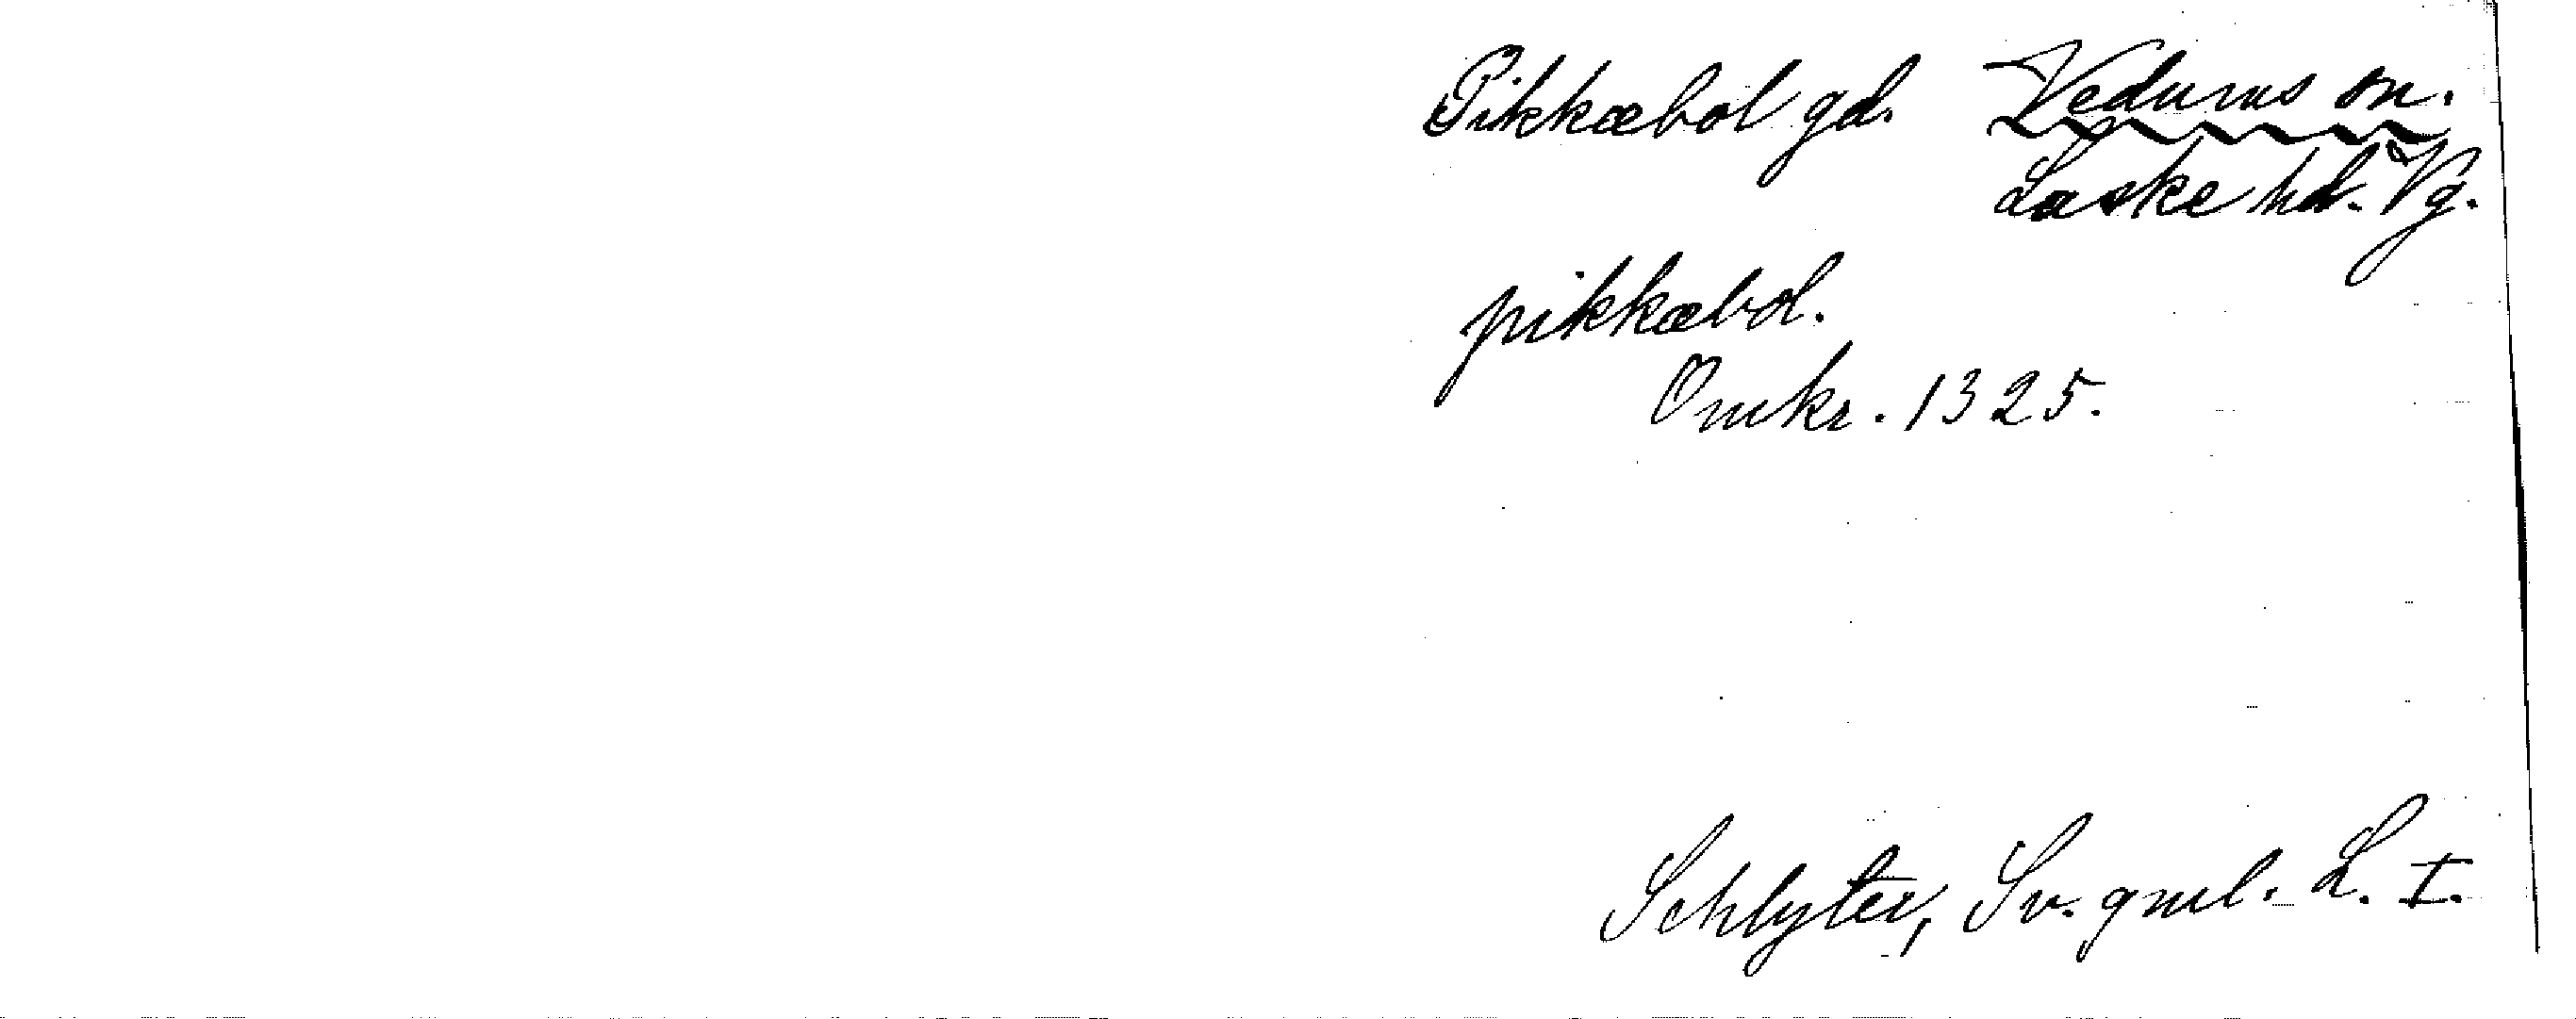 Pikkæbol gd. Vedums sn.
Laske hd. Vg.
pikkæbol.
Omkr. 1325.
Schlyter, Sv. gml. L. I.